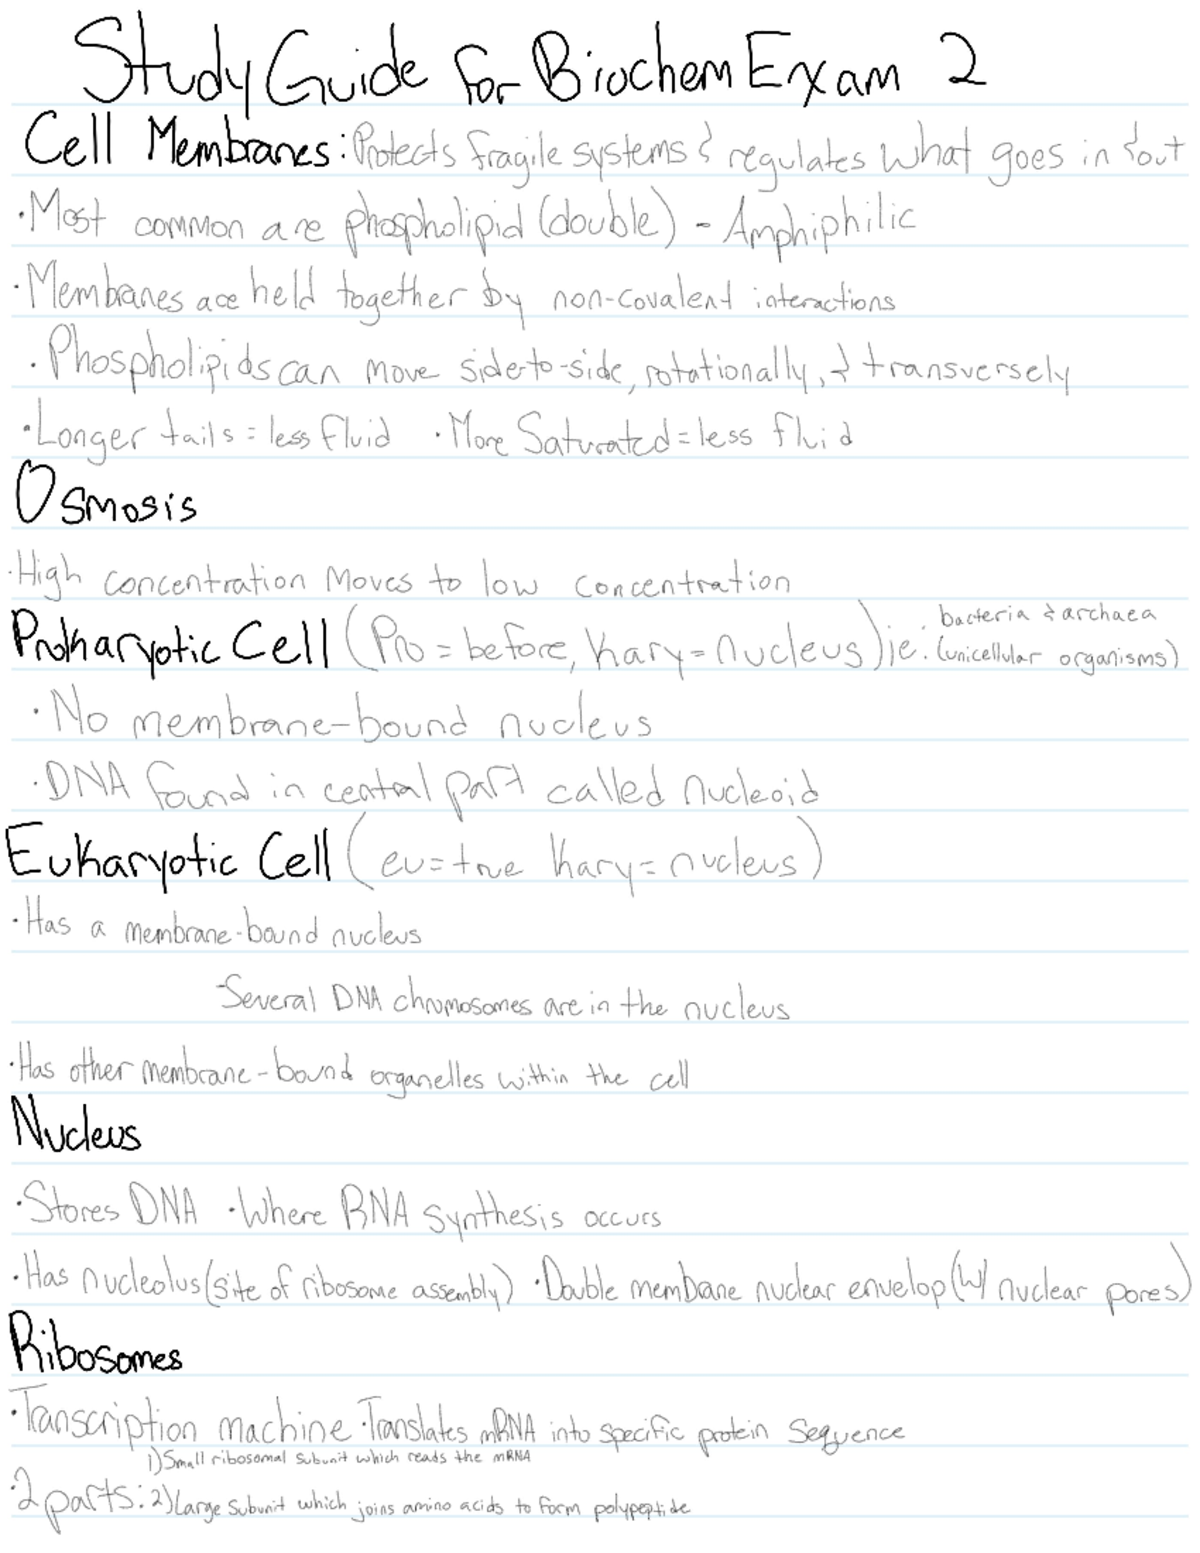 Study Guide for Biochem Exam 2
Cell Membranes: Protects fragile systems & regulates what goes in & out
·Most common are phospholipid (double) - Amphiphilic
·Membranes are held together by non-covalent interactions
·Phospholipids can move side-to-side, rotationally, & transversely
·Longer tails = less fluid ·More Saturated = less fluid
Osmosis
·High concentration moves to low concentration
Prokaryotic Cell (Pro = before, Kary = nucleus) ie. bacteria & archaea
(unicellular organisms)
·No membrane-bound nucleus
·DNA found in central part called nucleoid
Eukaryotic Cell (eu = true Kary = nucleus)
·Has a membrane-bound nucleus
-Several DNA chromosomes are in the nucleus
·Has other membrane-bound organelles within the cell
Nucleus
·Stores DNA ·Where RNA synthesis occurs
·Has nucleolus (site of ribosome assembly) ·Double membrane nuclear envelop (w/ nuclear pores)
Ribosomes
·Transcription machine ·Translates mRNA into specific protein sequence
1) Small ribosomal subunit which reads the mRNA
·2 parts: 2) Large subunit which joins amino acids to form polypeptide